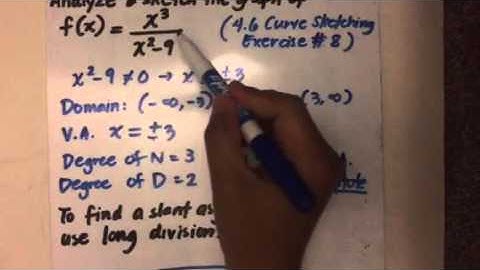 Analyze & sketch the graph of
f(x) = x³/(x²-9) (4.6 Curve Sketching
Exercise #8)
x²-9 ≠ 0 → x ± 3
Domain: (-∞,-3) (3,∞)
V.A. x = ±3
Degree of N = 3
Degree of D = 2
To find a slant
use long division